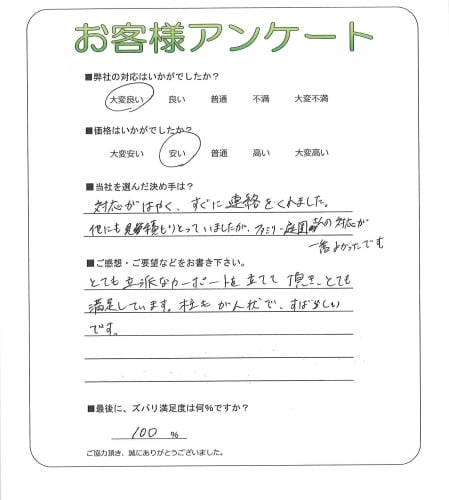 お客様アンケート
■弊社の対応はいかがでしたか?
大変良い 良い 普通 不満 大変不満
■価格はいかがでしたか?
大変安い 安い 普通 高い 大変高い
■当社を選んだ決め手は?
対応がはやく、すぐに連絡をくれました。
他にも見積もりとっていましたが、ファミリー庭園さんの対応が
一番よかったです
■ご感想・ご要望などをお書き下さい。
とても立派なカーポートを立てて頂き、とても
満足しています。柱もがん状で、すばらしい
です。
■最後に、ズバリ満足度は何%ですか?
100 %
ご協力頂き、誠にありがとうございました。